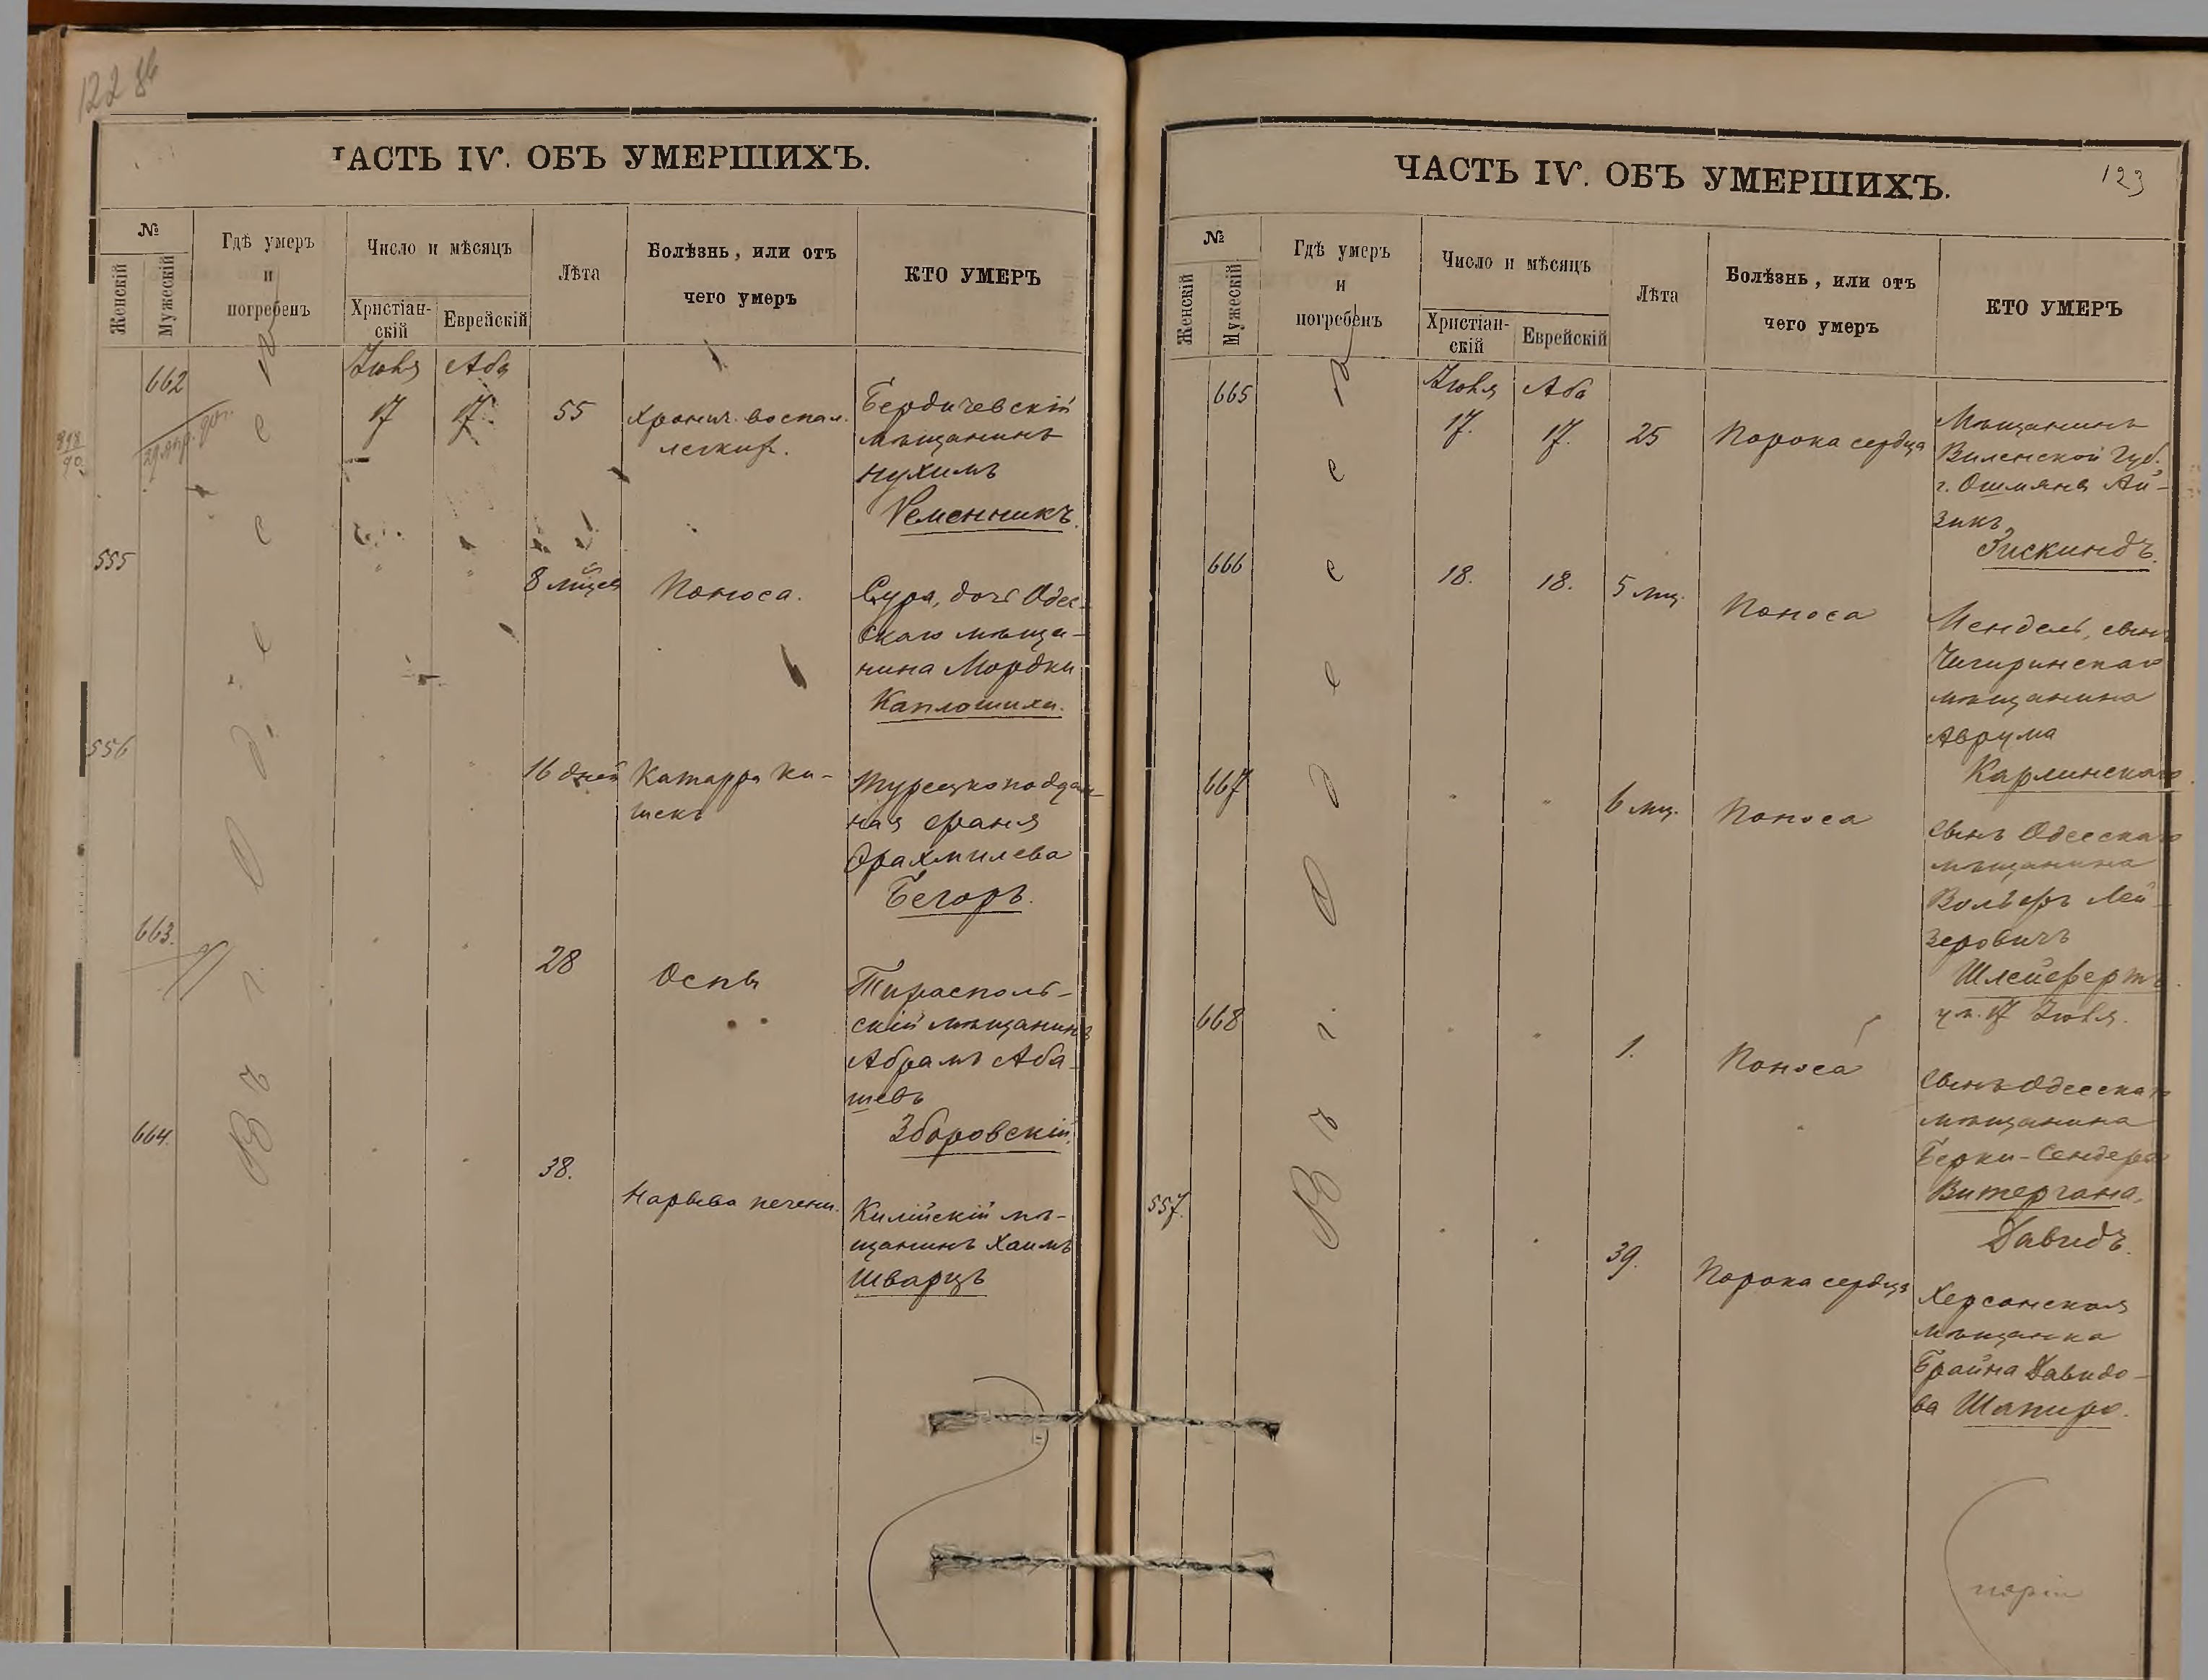 122 об
ЧАСТЬ IV. ОБЪ УМЕРШИХЪ.
№
Женскій
Мужескій
Гдѣ умеръ
и
погребенъ
Число и мѣсяцъ
Христіан-
скій
Еврейскій
Лѣта
Болѣзнь, или отъ
чего умеръ
КТО УМЕРЪ
Въ г. Одессѣ
662
Іюля Аба
17 17 55 Хронич. воспал.
легкихъ.
Бердичевскій
мѣщанинъ
Нухимъ
Ременникъ.
898
90
555
8 мѣсц. Поноса.
Сура, дочь Одес-
скаго мѣща-
нина Мордки
Каплошихи.
556
16 дней Катарра ки-
шекъ
Турецкоподдан-
ная Франя
Ерахмилева
Бегоръ.
663.
28 Оспы
Тирасполь-
скій мѣщанинъ
Абрамъ Аба-
шевъ
Зборовскій.
664.
38. Нарыва печени.
Килійскій мѣ-
щанинъ Хаимъ
Шварцъ
ЧАСТЬ IV. ОБЪ УМЕРШИХЪ.
123
№
Женскій
Мужескій
Гдѣ умеръ
и
погребенъ
Число и мѣсяцъ
Христіан-
скій
Еврейскій
Лѣта
Болѣзнь, или отъ
чего умеръ
КТО УМЕРЪ
Въ г. Одессѣ
665
Іюля Аба
17. 17. 25 Порока сердца
Мѣщанинъ
Виленской Губ.
г. Ошмяны Ай-
зикъ
Зискиндъ.
666
18. 18. 5 мц. Поноса
Мендель, сынъ
Чигиринскаго
мѣщанина
Аврума
Карлинскаго.
667
6 мц. Поноса
Сынъ Одесскаго
мѣщанина
Вольфъ Лей-
зеровичъ
Шлейфертъ.
ум. 17 Іюля.
668
1. Поноса
Сынъ Одесскаго
мѣщанина
Берки-Сендера
Витергана,
Давидъ.
557.
39. Порока сердца
Херсонская
мѣщанка
Брайна Давидо-
ва Шапиро.